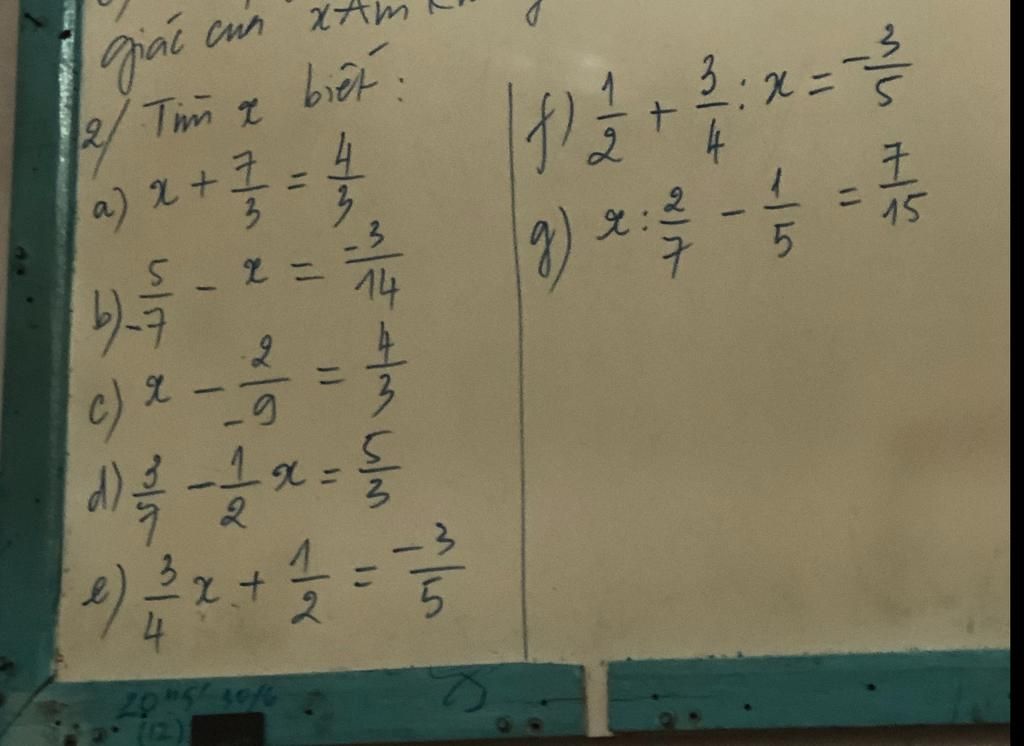 giác của xAm
2/ Tìm x biết:
a) x + 7/3 = 4/3
b) 5/-7 - x = -3/14
c) x - 2/-9 = 4/3
d) 3/7 - 1/2 x = 5/3
e) 3/4 x + 1/2 = -3/5
f) 1/2 + 3/4 : x = -3/5
g) x : 2/7 - 1/5 = 7/15